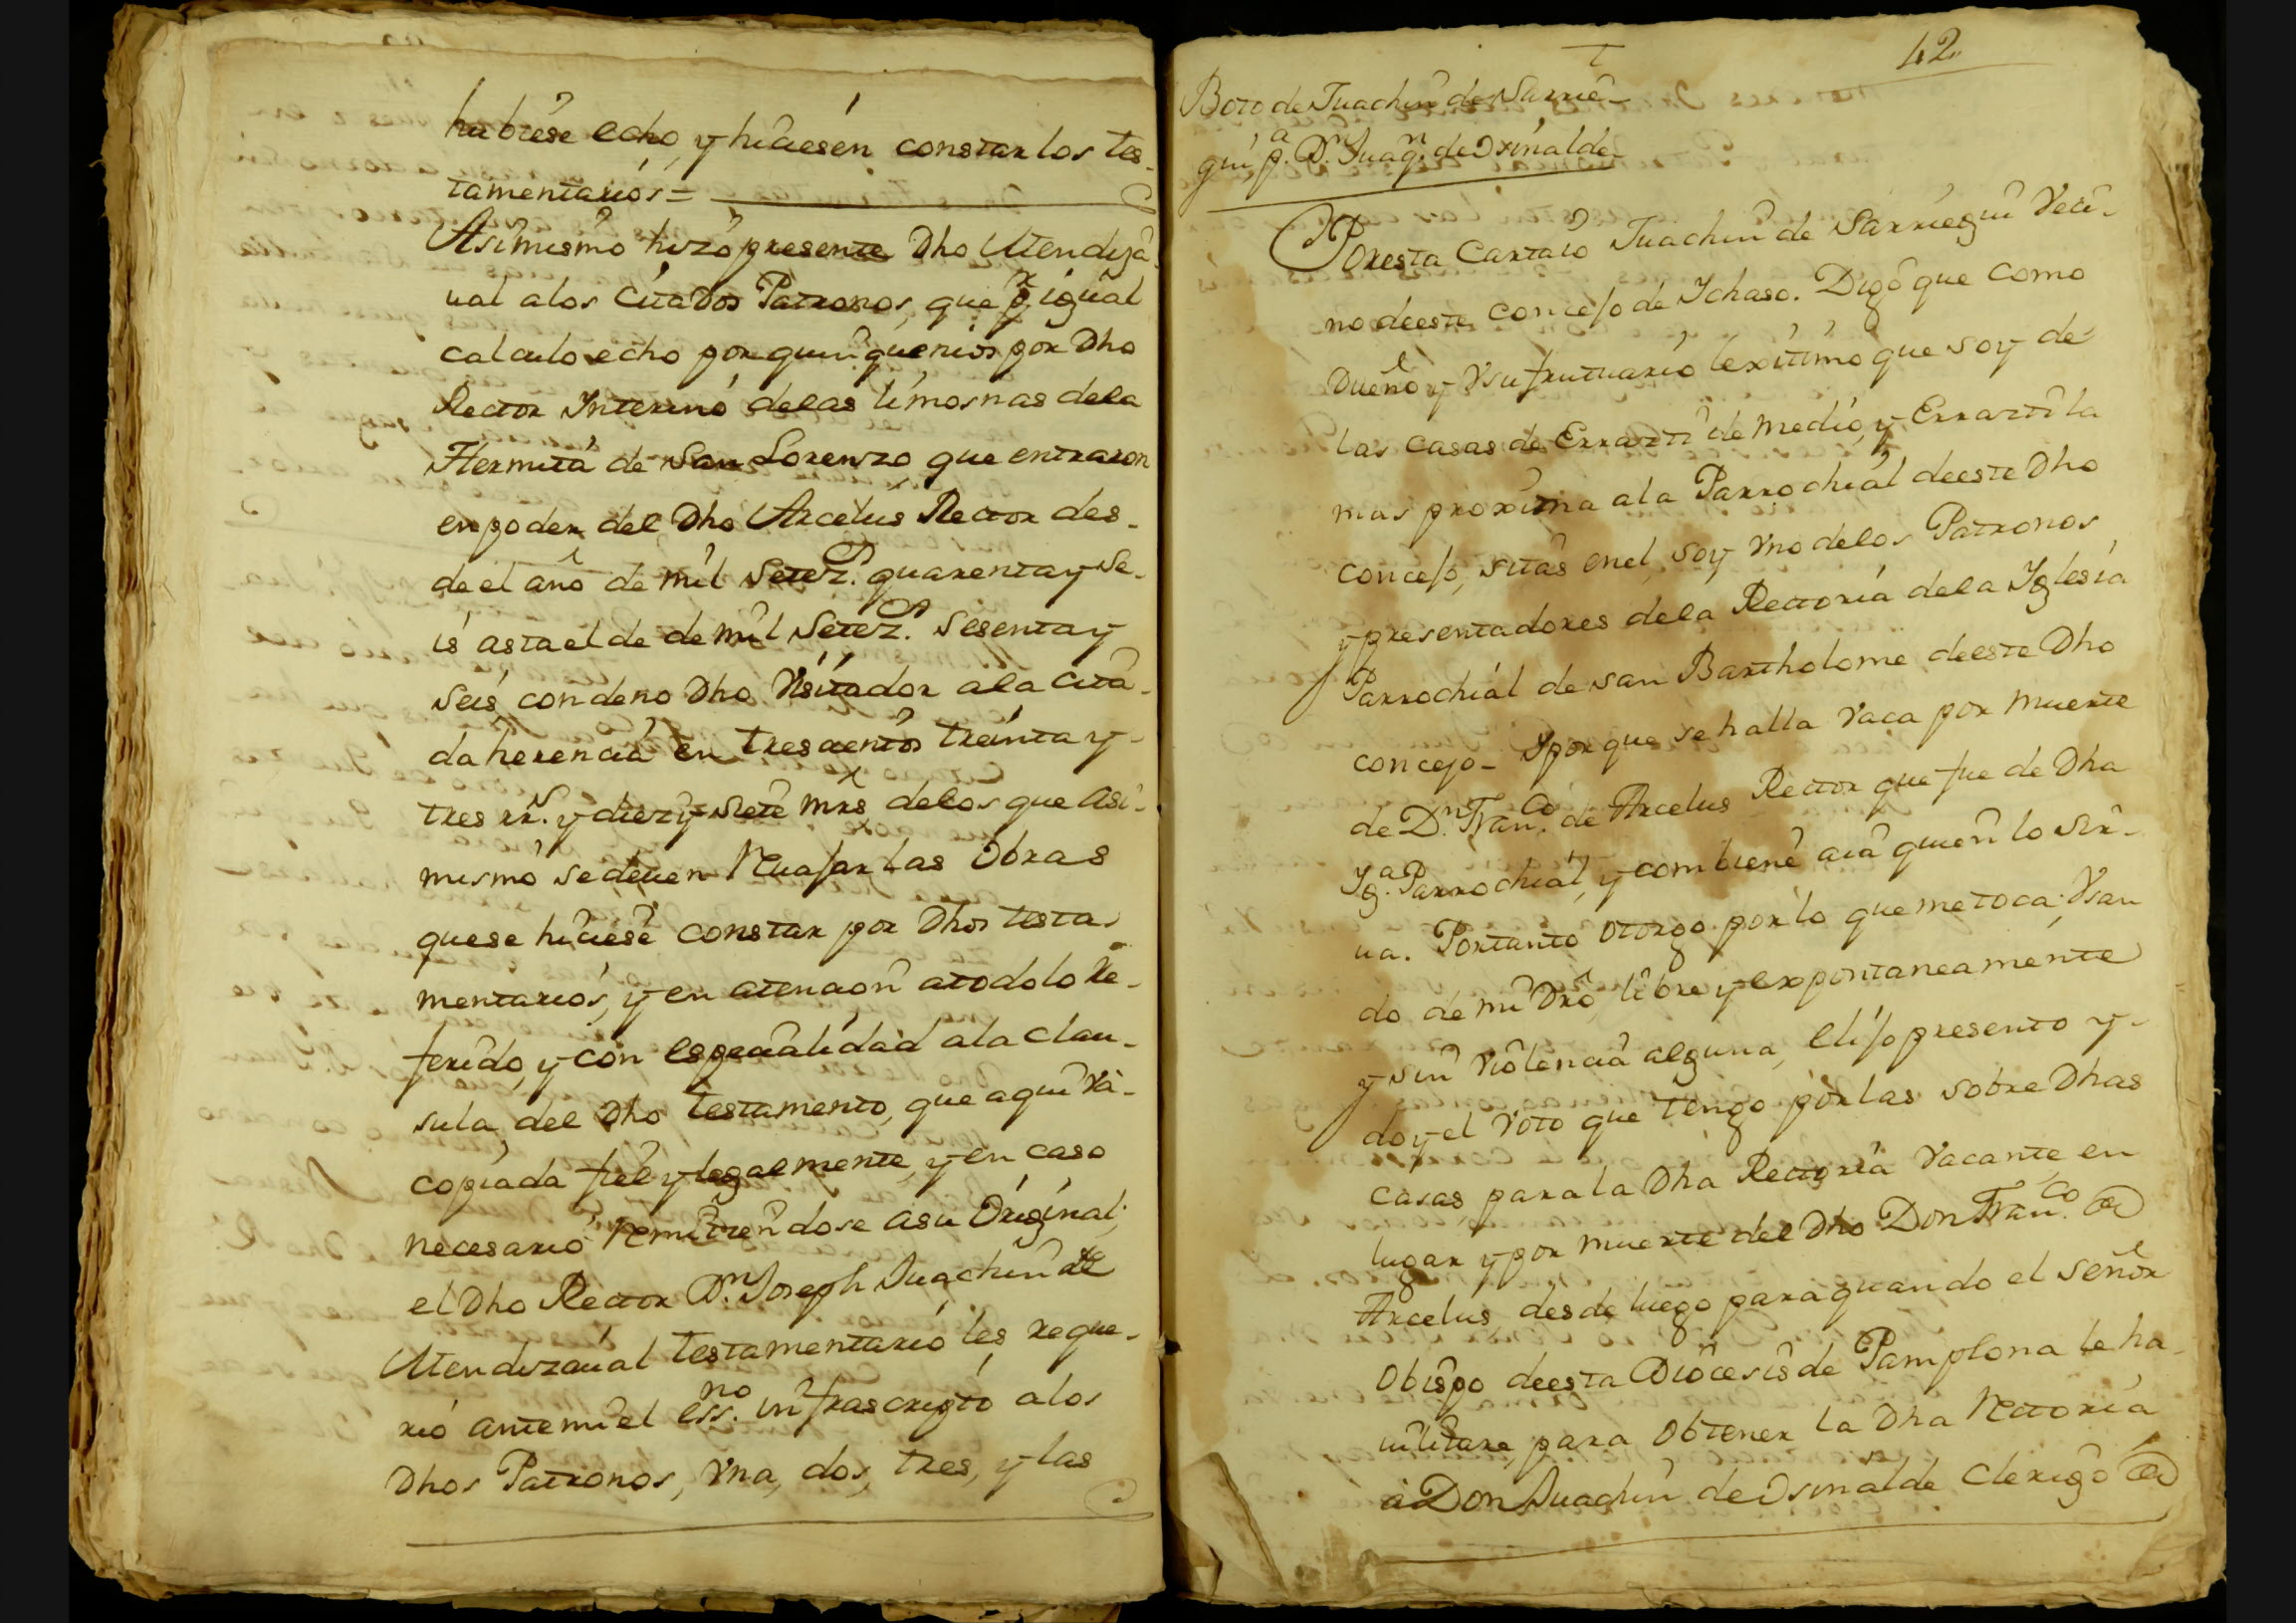 hubiese echo, y hiciesen constar los tes-
tamentarios =
Asimismo hizo presente Dho Utendiza-
ual a los Citados Patronos, que pr. igual
calculo echo por quinquenios por Dho
Rector Interino de las limosnas dela
Hermita de San Lorenzo, que entraron
en poder del Dho Arcelus Rector des-
de el año de mil Setezs. quarenta y se-
is asta el de de mil Setezs. Sesenta y
seis, condeno Dho Visitador ala cita-
da herencia en trescientos treinta y
tres rrs. y diez y siete mrs delos que asi-
mismo se deuen Reuajar las Obras
que se hiciese constar por Dhos testa-
mentarios, y en atencion a todo lo Re-
ferido, y con especialidad ala clau-
sula, del Dho testamento, que aqui Va
copiada fiel y legalmente, y en caso
necesario Remitiendose asu Original;
el Dho Rector Dn. Joseph Juachin de
Utendizaual testamentario les reque-
rio ante mi el essno. infrascripto alos
Dhos Patronos, Vna, dos, tres, y las
42
Boto de Juachin de Sarrie-
gui, pa. Dn. Juaqn. de Osinalde
Por esta Carta io Juachin de Sarriegui Veci-
no de este concejo de Ichaso. Digo que como
Dueño y Vsufrutuario lexitimo que soy de
las casas de Errazti de medio, y Errazti la
mas proxima ala Parrochial de este Dho
concejo, sitas en el, soy Vno delos Patronos
y presentadores dela Rectoria dela Iglesia
Parrochial de san Bartholome de este Dho
concejo - Y por que se halla Vaca por muerte
de Dn. Franco. de Arcelus Rector que fue de Dha
Iga. Parrochial, y combiene aia quien lo sir-
ua. Portanto otorgo por lo que me toca; Vsan
do de mi Dro, libre y expontaneamente
y sin Violencia alguna, elijo presento y
doy el Voto que tengo por las sobre Dhas
casas para la Dha Rectoria Vacante, en
lugar y por muerte del Dho Don Franco. de
Arcelus, desde luego para quando el señor
Obispo de esta Diocesis de Pamplona le ha-
uilitare, para Obtener la Dha Rectoria
a Don Juachin de Osinalde Clerigo de